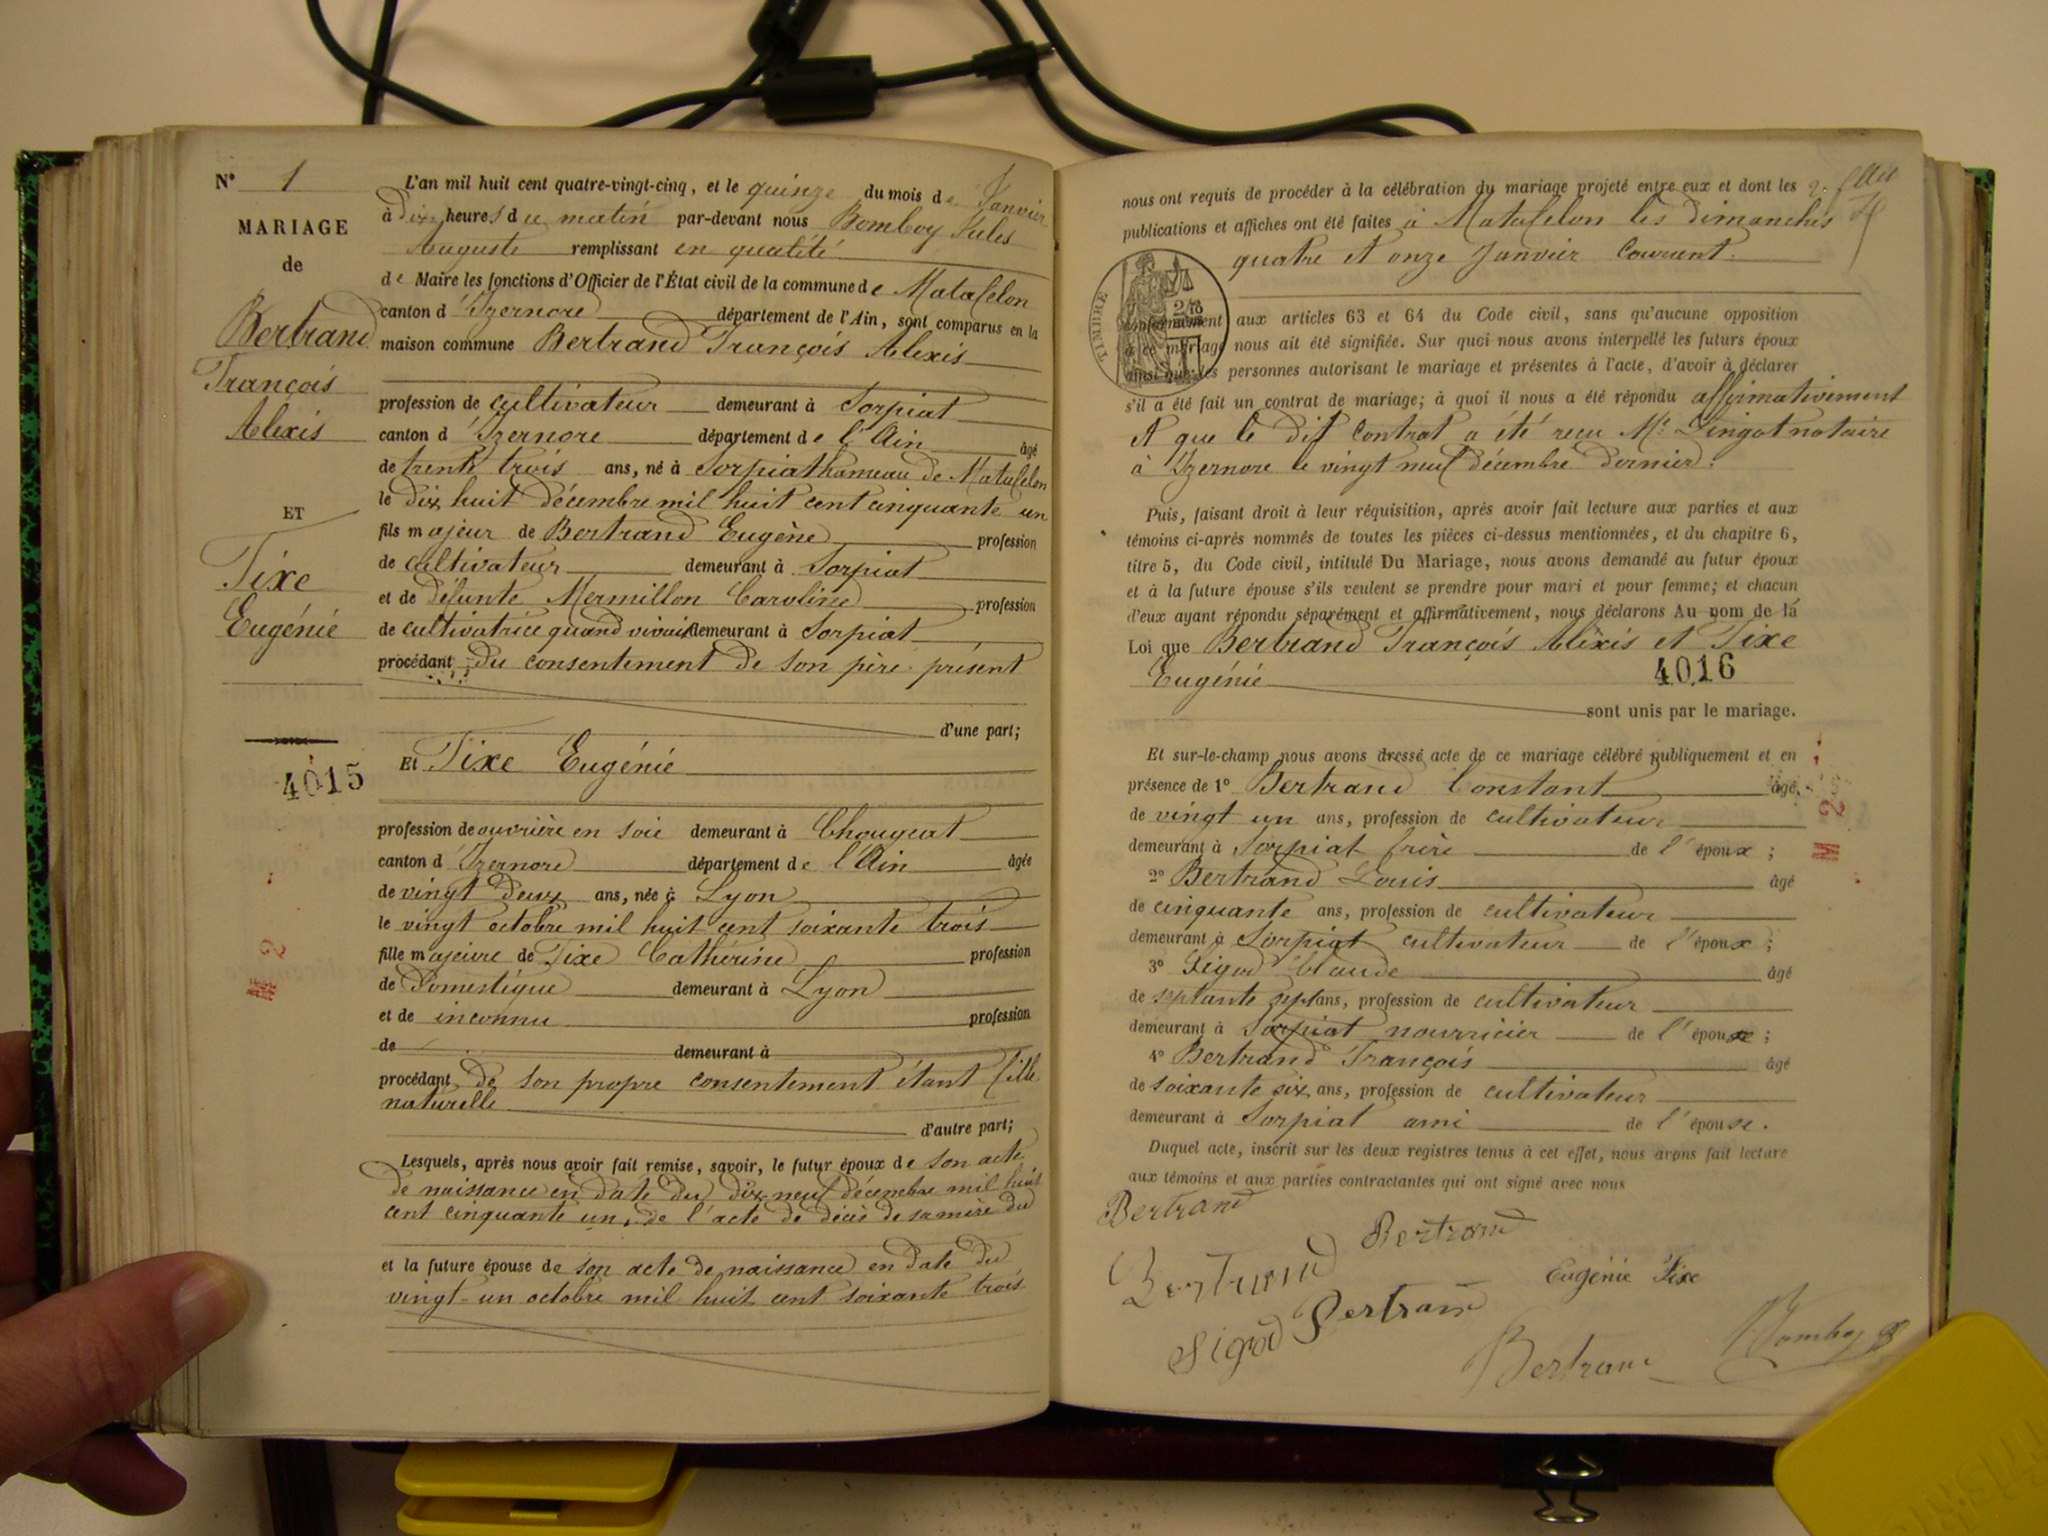 N° 1
MARIAGE
de
Bertrand
François
Alexis
ET
Tixe
Eugénie
4015
L'an mil huit cent quatre-vingt-cinq, et le quinze du mois de Janvier
à dix heures du matin par-devant nous Bomboy Jules
Auguste remplissant en qualité
de Maire les fonctions d'Officier de l'État civil de la commune de Matafelon
canton d'Izernore département de l'Ain, sont comparus en la
maison commune Bertrand François Alexis
profession de cultivateur demeurant à Sorpiat
canton d'Izernore département de l'Ain âgé
de trente trois ans, né à Sorpiat hameau de Matafelon
le dix huit décembre mil huit cent cinquante un
fils majeur de Bertrand Eugène profession
de cultivateur demeurant à Sorpiat
et de défunte Mermillon Caroline profession
de cultivatrice quand vivait demeurant à Sorpiat
procédant du consentement de son père présent
d'une part;
Et Tixe Eugénie
profession de ouvrière en soie demeurant à Chougeat
canton d'Izernore département de l'Ain âgée
de vingt deux ans, née à Lyon
le vingt octobre mil huit cent soixante trois
fille majeure de Tixe Cathérine profession
de Domestique demeurant à Lyon
et de inconnu profession
de demeurant à
procédant de son propre consentement étant fille
naturelle
d'autre part;
Lesquels, après nous avoir fait remise, savoir, le futur époux de son acte
de naissance en date du dix-neuf décembre mil huit
cent cinquante un, de l'acte de décès de sa mère du
et la future épouse de son acte de naissance en date du
vingt-un octobre mil huit cent soixante trois
nous ont requis de procéder à la célébration du mariage projeté entre eux et dont les
publications et affiches ont été faites à Matafelon les dimanches
quatre et onze Janvier courant.
TIMBRE
conformément aux articles 63 et 64 du Code civil, sans qu'aucune opposition
à ce mariage nous ait été signifiée. Sur quoi nous avons interpellé les futurs époux
ainsi que les personnes autorisant le mariage et présentes à l'acte, d'avoir à déclarer
s'il a été fait un contrat de mariage; à quoi il nous a été répondu affirmativement
et que le dit contrat a été reçu Me Lingot notaire
à Izernore le vingt neuf décembre dernier.
Puis, faisant droit à leur réquisition, après avoir fait lecture aux parties et aux
témoins ci-après nommés de toutes les pièces ci-dessus mentionnées, et du chapitre 6,
titre 5, du Code civil, intitulé Du Mariage, nous avons demandé au futur époux
et à la future épouse s'ils veulent se prendre pour mari et pour femme; et chacun
d'eux ayant répondu séparément et affirmativement, nous déclarons Au nom de la
Loi que Bertrand François Aléxis et Tixe
Eugénie
4016
sont unis par le mariage.
Et sur-le-champ nous avons dressé acte de ce mariage célébré publiquement et en
présence de 1° Bertrand Constant âgé
de vingt un ans, profession de cultivateur
demeurant à Sorpiat frère de l'époux;
2° Bertrand Louis âgé
de cinquante ans, profession de cultivateur
demeurant à Sorpiat cultivateur de l'époux;
3° Sigod Claude âgé
de septante sept ans, profession de cultivateur
demeurant à Sorpiat nourricier de l'épouse;
4° Bertrand François âgé
de soixante six ans, profession de cultivateur
demeurant à Sorpiat ami de l'épouse.
Duquel acte, inscrit sur les deux registres tenus à cet effet, nous avons fait lecture
aux témoins et aux parties contractantes qui ont signé avec nous
Bertrand
Bertrand
Bertrand
Eugénie Tixe
Bertrand
Sigod
Bertrand
Bomboy